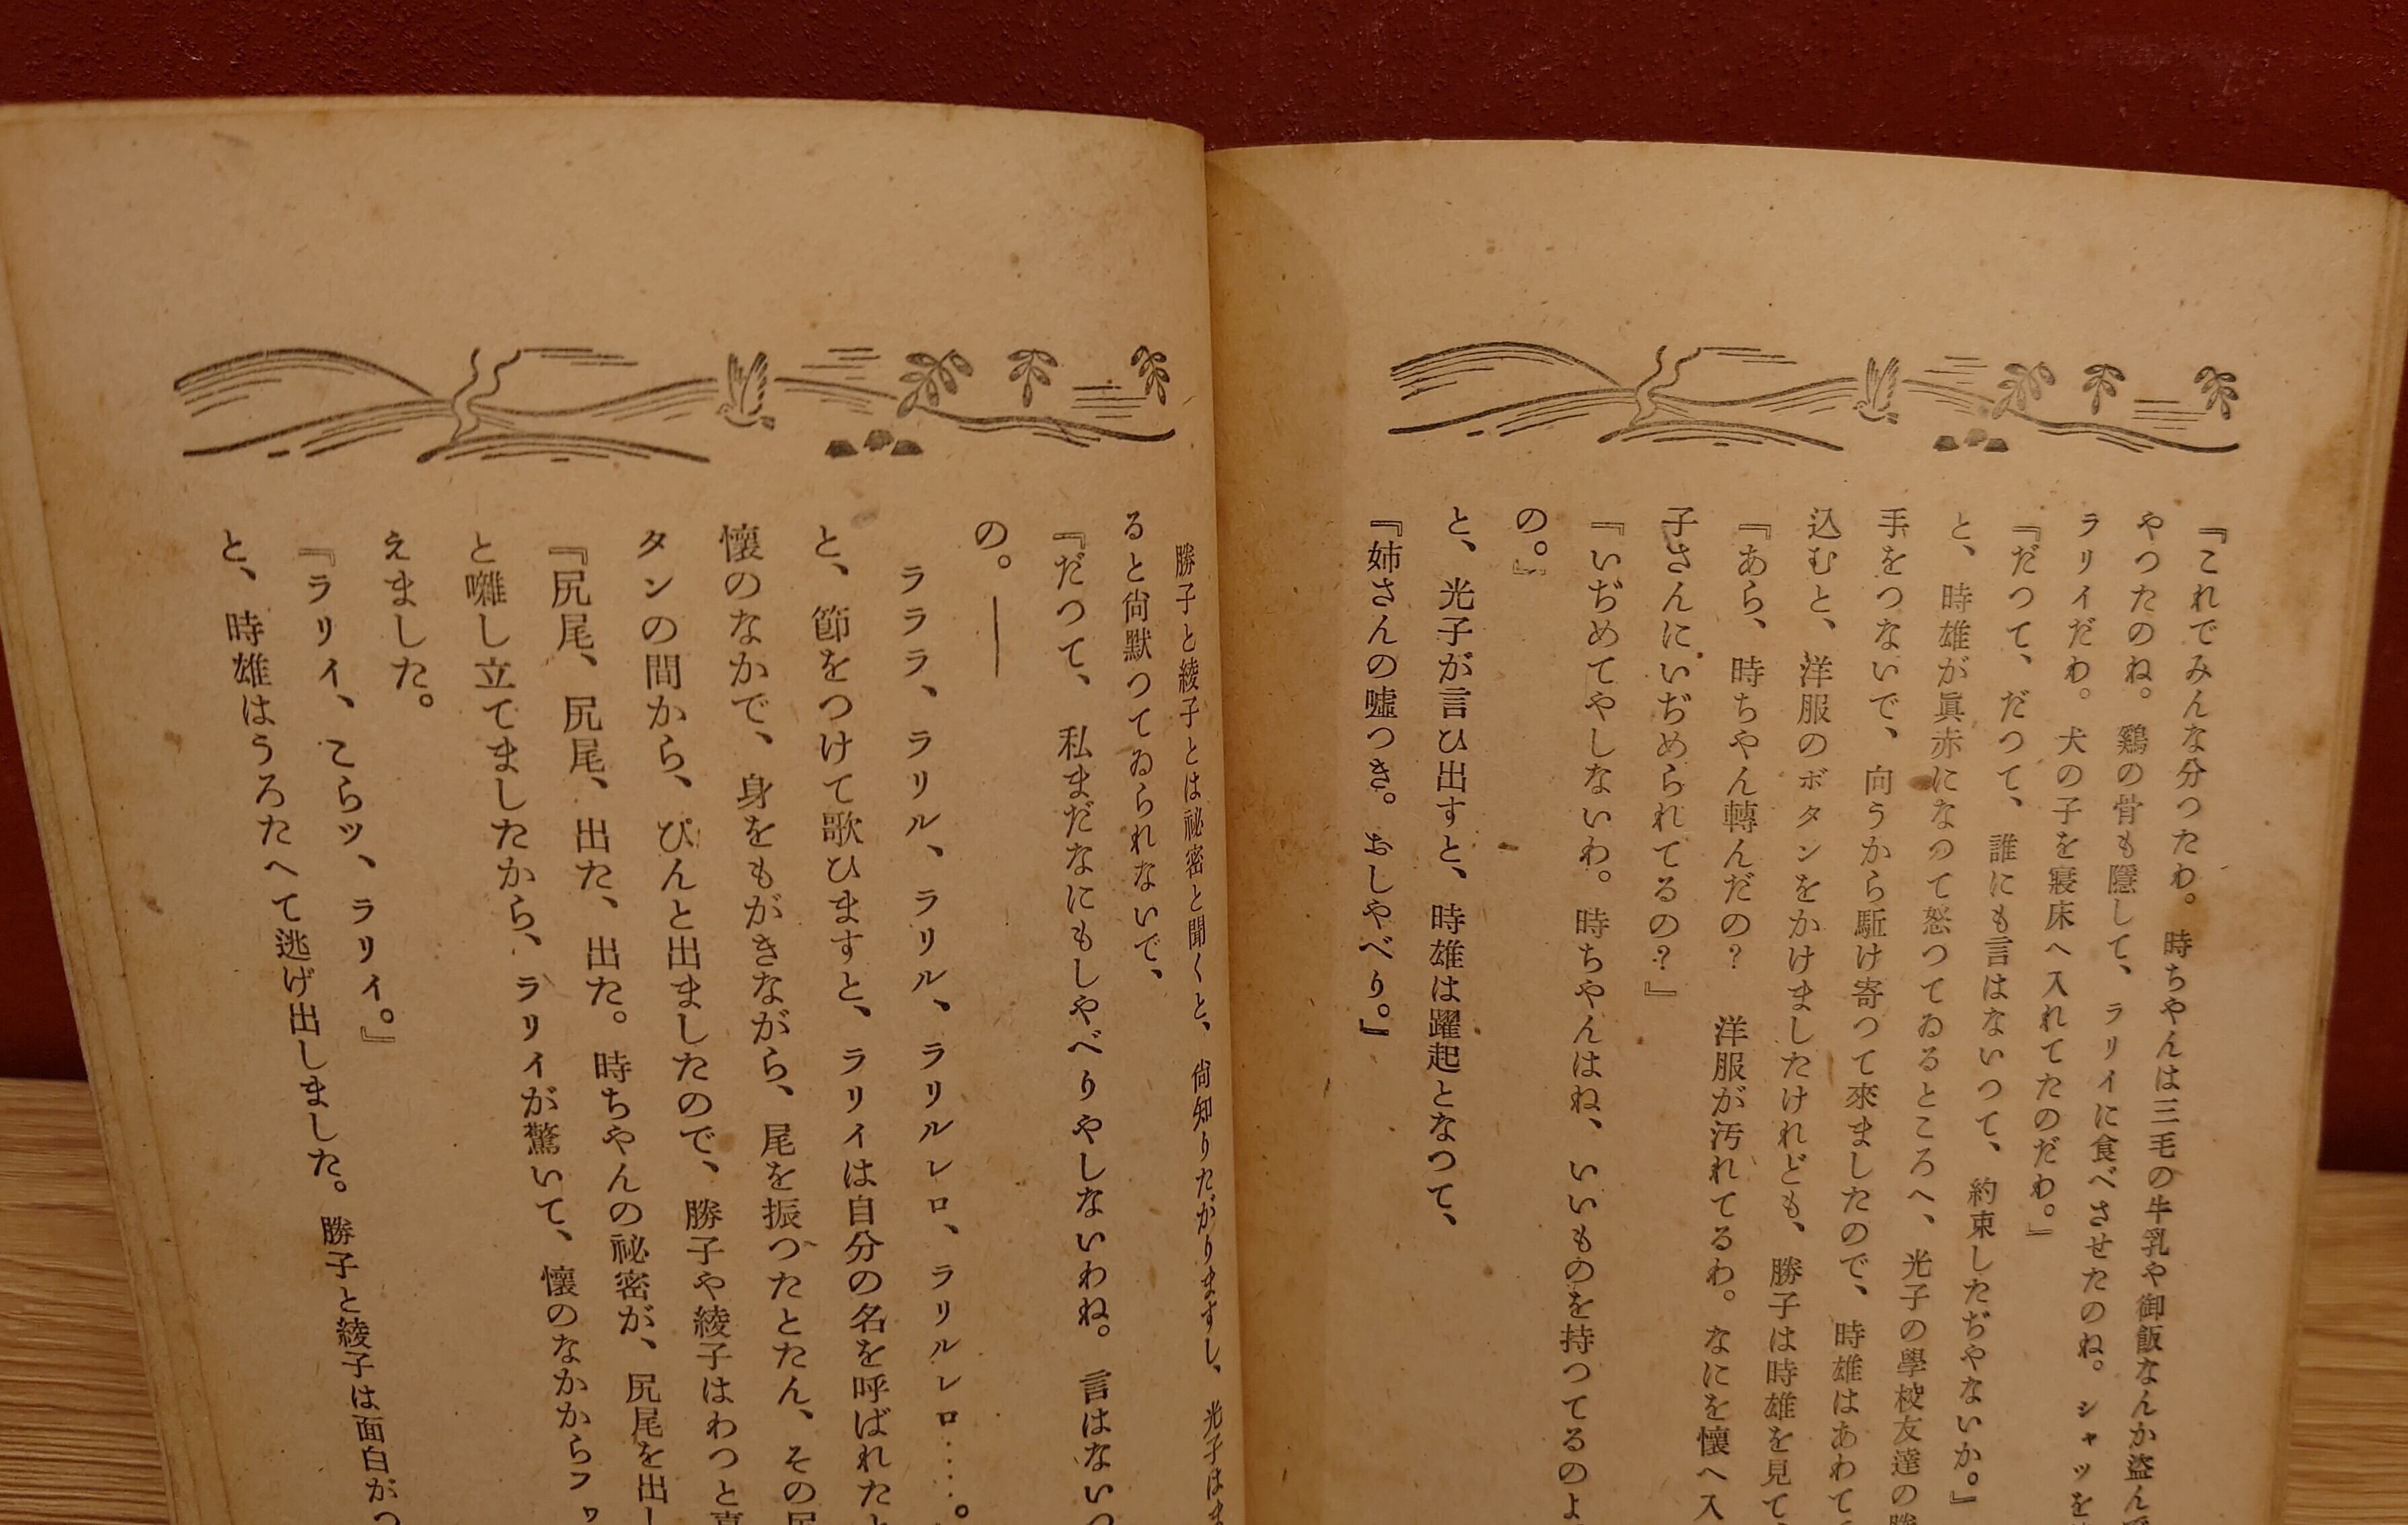 『これでみんな分つたわ。時ちやんは三毛の牛乳や御飯なんか盗んで
やつたのね。鷄の骨も隱して、ラリイに食べさせたのね。シャツを
ラリイだわ。犬の子を寢床へ入れてたのだわ。』
『だつて、だつて、誰にも言はないつて、約束したぢやないか。』
と、時雄が眞赤になつて怒つてゐるところへ、光子の學校友達の勝
手をつないで、向うから駈け寄つて來ましたので、時雄はあわて
込むと、洋服のボタンをかけましたけれども、勝子は時雄を見て、
『あら、時ちやん轉んだの？　洋服が汚れてるわ。なにを懷へ入
子さんにいぢめられてるの？』
『いぢめてやしないわ。時ちやんはね、いいものを持つてるのよ
の。』
と、光子が言ひ出すと、時雄は躍起となつて、
『姉さんの嘘つき。おしやべり。』
勝子と綾子とは祕密と聞くと、尙知りたがりますし、光子はま
ると尙默つてゐられないで、
『だつて、私まだなにもしやべりやしないわね。言はないつ
の。――
ラララ、ラリル、ラリル、ラリルレロ、ラリルレロ……。
と、節をつけて歌ひますと、ラリイは自分の名を呼ばれたと
懷のなかで、身をもがきながら、尾を振つたとたん、その尻
タンの間から、ぴんと出ましたので、勝子や綾子はわつと喜
『尻尾、尻尾、出た、出た。時ちやんの祕密が、尻尾を出し
と囃し立てましたから、ラリイが驚いて、懷のなかからフワ
えました。
『ラリイ、こらッ、ラリイ。』
と、時雄はうろたへて逃げ出しました。勝子と綾子は面白がつ